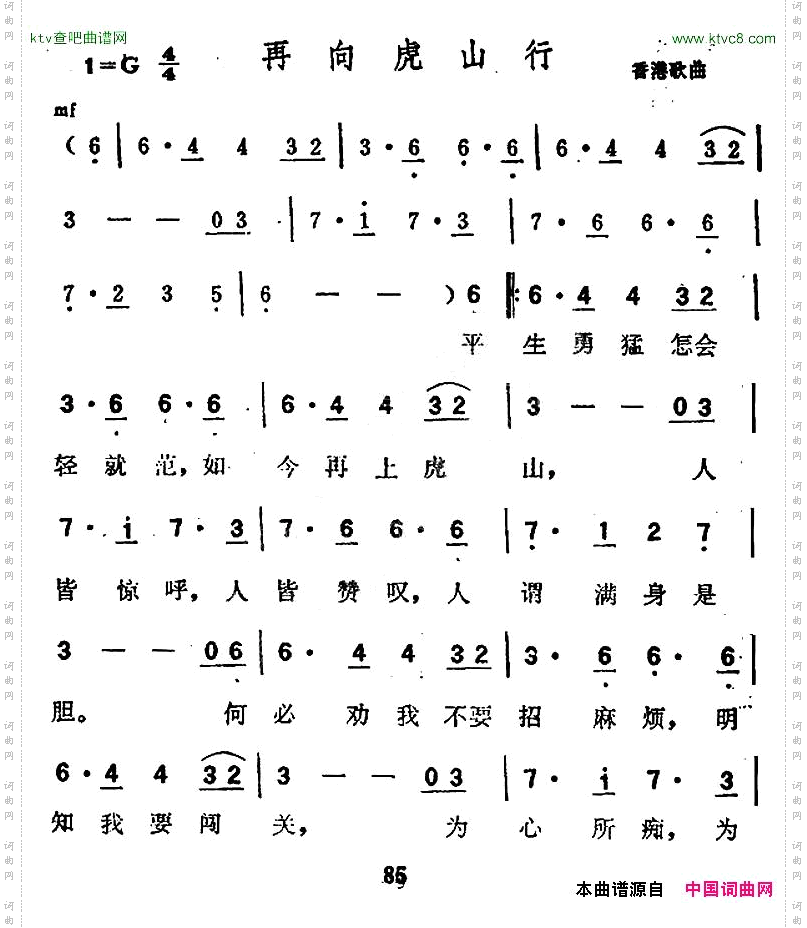 ktv查吧曲谱网
www.ktvc8.com
再向虎山行
1=G 4/4
香港歌曲
mf
( 6 | 6· 4 4 32 | 3· 6 6· 6 | 6· 4 4 32 |
3 — — 03 | 7· i 7· 3 | 7· 6 6· 6 |
7· 2 3 5 | 6 — — ) 6 ‖: 6· 4 4 32 |
平 生 勇 猛 怎会
3· 6 6· 6 | 6· 4 4 32 | 3 — — 03 |
轻 就 范，如 今 再 上 虎 山， 人
7· i 7· 3 | 7· 6 6· 6 | 7· 1 2 7 |
皆 惊 呼，人 皆 赞 叹，人 谓 满 身 是
3 — — 06 | 6· 4 4 32 | 3· 6 6· 6 |
胆。 何 必 劝 我 不要 招 麻 烦，明
6· 4 4 32 | 3 — — 03 | 7· i 7· 3 |
知 我 要 闯 关， 为 心 所 痴，为
85
本曲谱源自 中国词曲网
词曲网